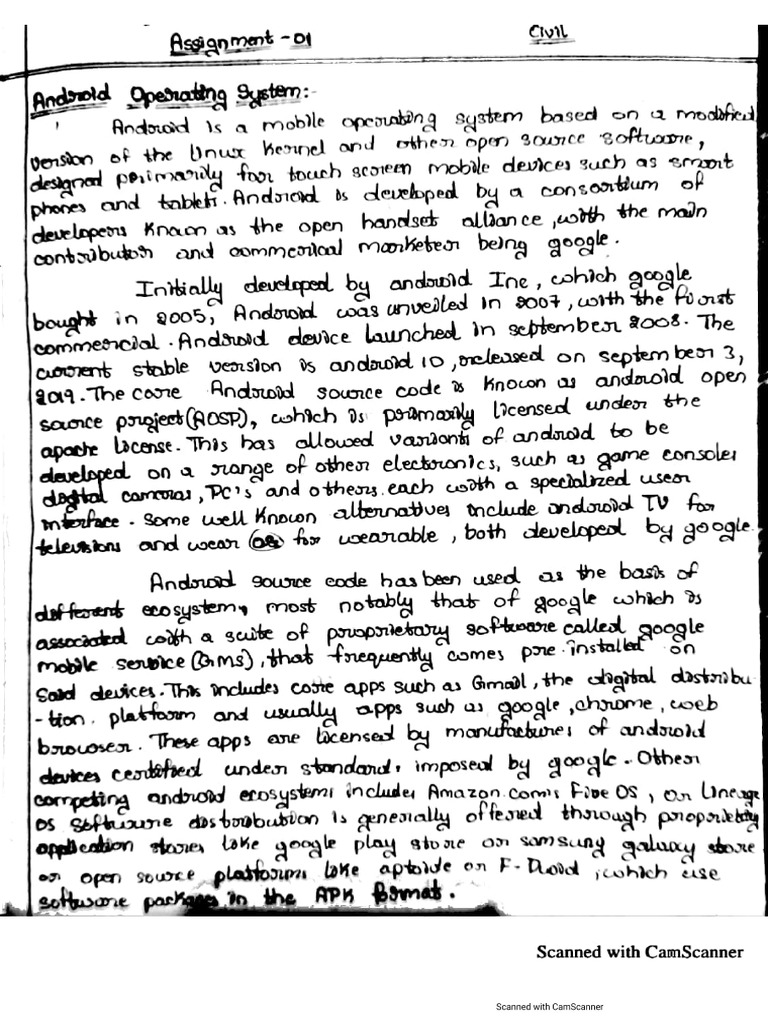 Assignment - 01
Civil
Android Operating System:-
Android is a mobile operating system based on a modified
version of the Linux Kernel and other open source software,
designed primarily for touch screen mobile devices such as smart
phones and tablets. Android is developed by a consortium of
developers known as the open handset alliance, with the main
contributor and commerical marketer being google.
Initially developed by android Inc, which google
bought in 2005, Android was unveiled in 2007, with the first
commercial. Android device launched in september 2008. The
current stable version is android 10, released on september 3,
2019. The core Android source code is known as android open
source project (AOSP), which is primarily licensed under the
apache license. This has allowed variants of android to be
developed on a range of other electronics, such as game consoles
digital cameras, PC's and others. each with a specialized user
interface. Some well known alternatives include android TV for
televisions and wear OS for wearable, both developed by google.
Android source code has been used as the basis of
different ecosystem, most notably that of google which is
associated with a suite of proprietary software called google
mobile service (GMS), that frequently comes pre-installed on
said devices. This includes core apps such as Gmail, the digital distribu
-tion. platform and usually apps such as google, chrome, web
browser. These apps are licensed by manufactures of android
devices certified under standards imposed by google. Other
competing android ecosystems includes Amazon.com's Fire OS, or Lineage
OS Software distribution is generally offered through proprietary
application stores like google play store or samsung galaxy store
or open source platforms like aptoide or F-Droid, which use
software packages in the APK format.
Scanned with CamScanner
Scanned with CamScanner